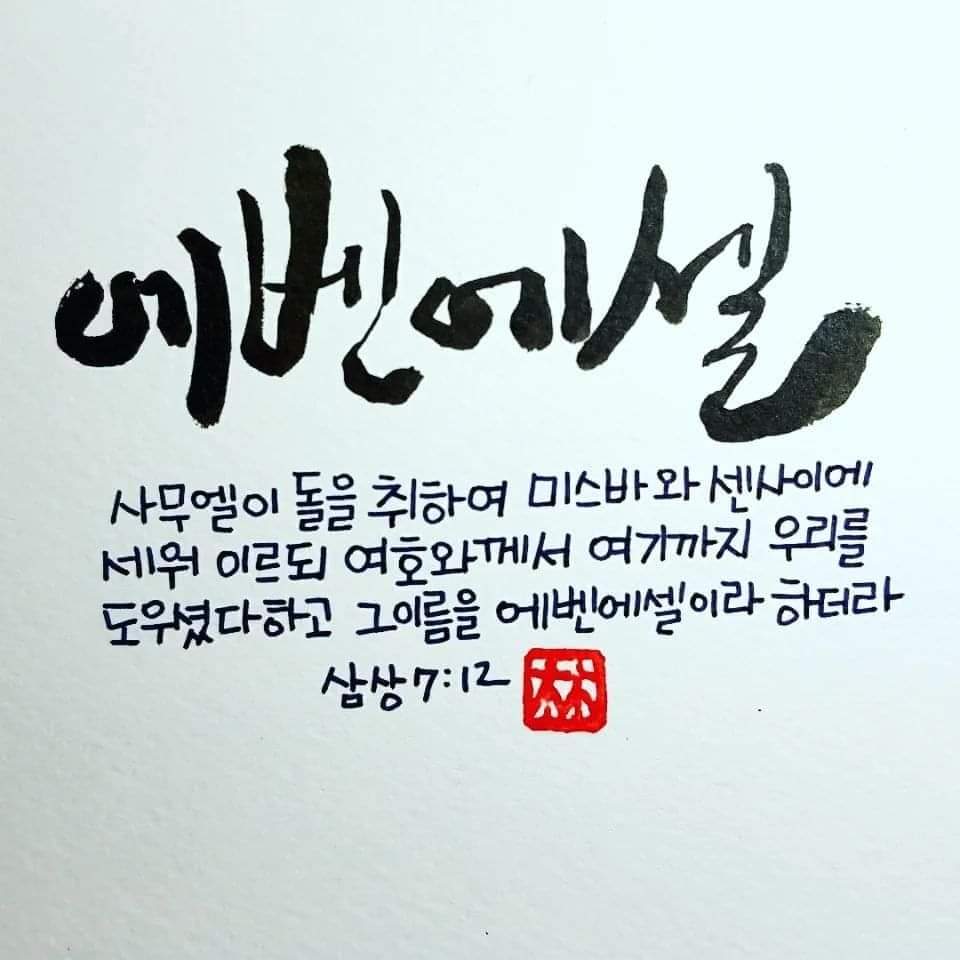 에벤에셀
사무엘이 돌을 취하여 미스바와 센사이에
세워 이르되 여호와께서 여기까지 우리를
도우셨다하고 그이름을 에벤에셀이라 하더라
삼상 7:12